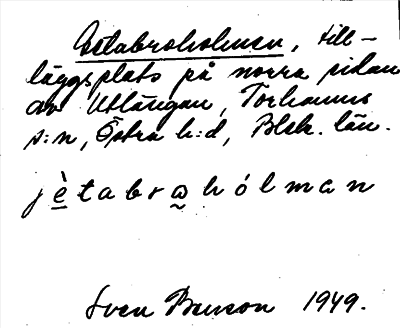 Getabroholmen, till-
läggsplats på norra sidan
av Utlängan, Torhamns
s:n, Östra h:d, Blek. län.
jètabrahólman
Sven Benson 1949.